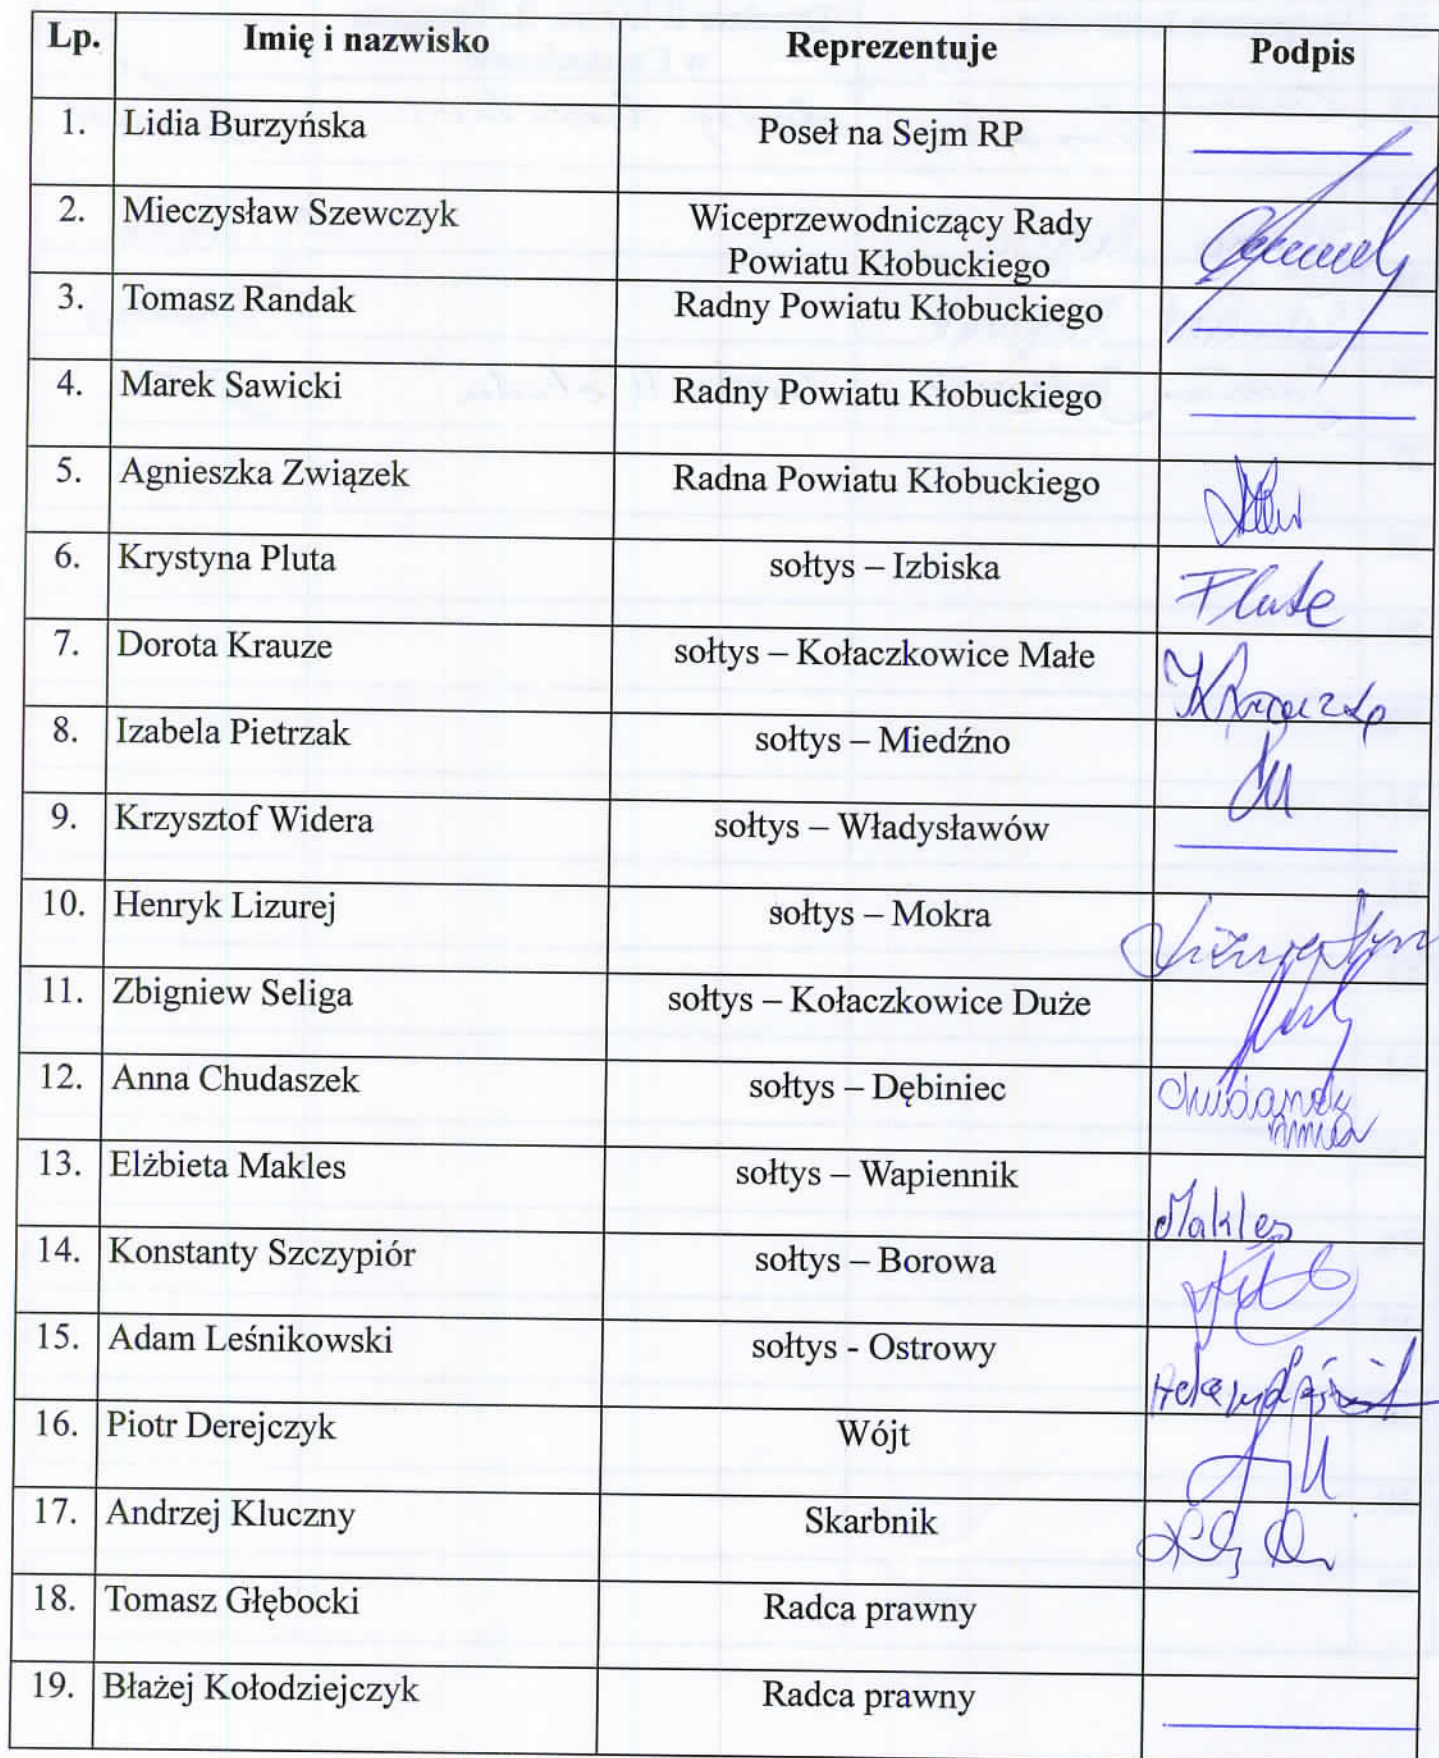 Lp. Imię i nazwisko Reprezentuje Podpis
1. Lidia Burzyńska Poseł na Sejm RP
2. Mieczysław Szewczyk Wiceprzewodniczący Rady
Powiatu Kłobuckiego
3. Tomasz Randak Radny Powiatu Kłobuckiego
4. Marek Sawicki Radny Powiatu Kłobuckiego
5. Agnieszka Związek Radna Powiatu Kłobuckiego
6. Krystyna Pluta sołtys – Izbiska
7. Dorota Krauze sołtys – Kołaczkowice Małe
8. Izabela Pietrzak sołtys – Miedźno
9. Krzysztof Widera sołtys – Władysławów
10. Henryk Lizurej sołtys – Mokra
11. Zbigniew Seliga sołtys – Kołaczkowice Duże
12. Anna Chudaszek sołtys – Dębiniec
13. Elżbieta Makles sołtys – Wapiennik Makles
14. Konstanty Szczypiór sołtys – Borowa
15. Adam Leśnikowski sołtys - Ostrowy
16. Piotr Derejczyk Wójt
17. Andrzej Kluczny Skarbnik
18. Tomasz Głębocki Radca prawny
19. Błażej Kołodziejczyk Radca prawny